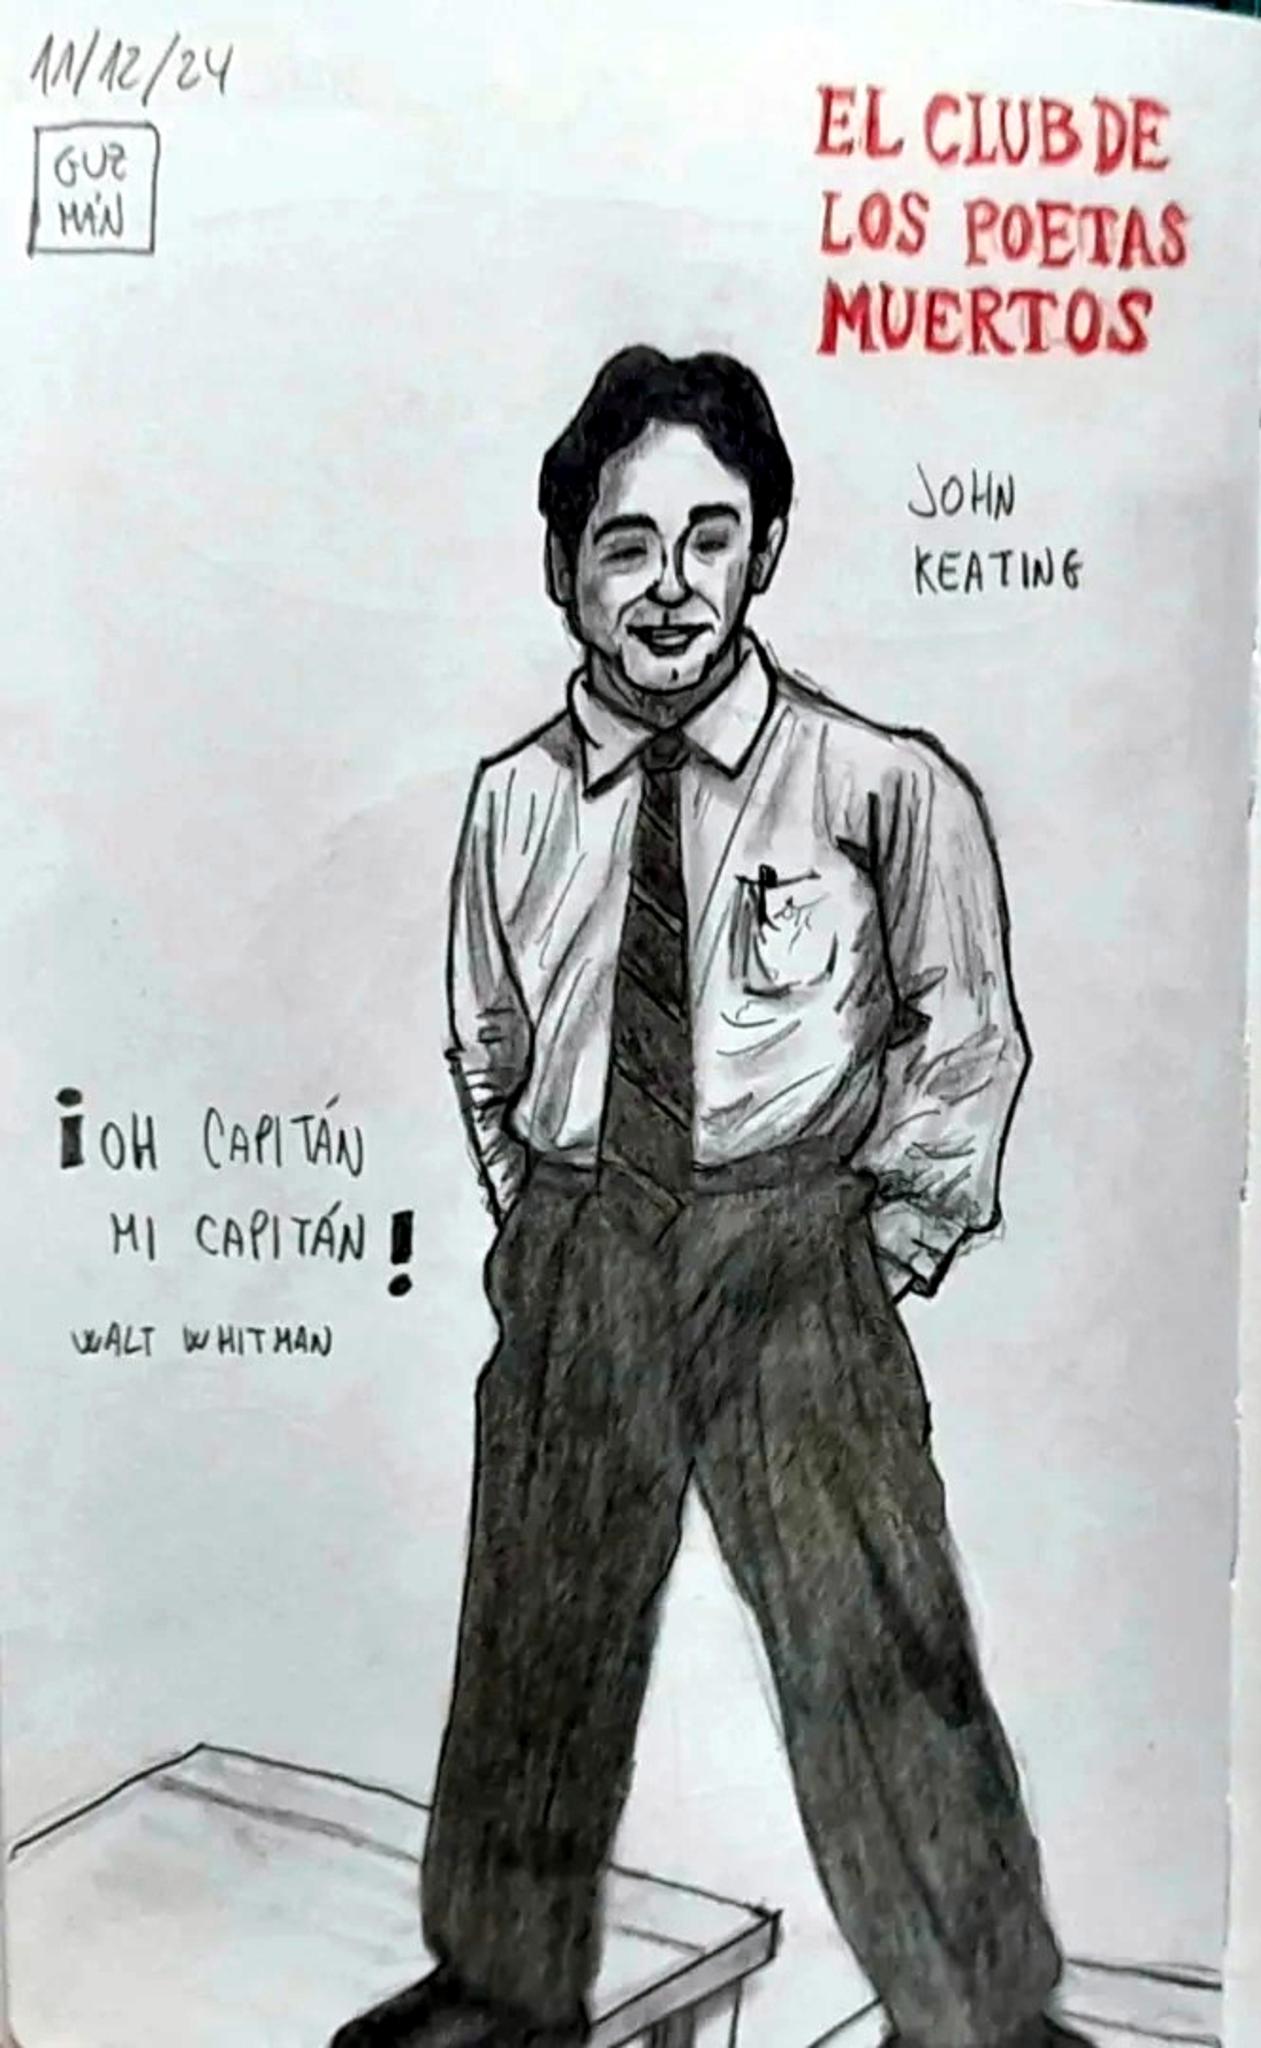 11/12/24
GUZ
MÁN
EL CLUB DE
LOS POETAS
MUERTOS
JOHN
KEATING
¡OH CAPITÁN
MI CAPITÁN!
WALT WHITMAN